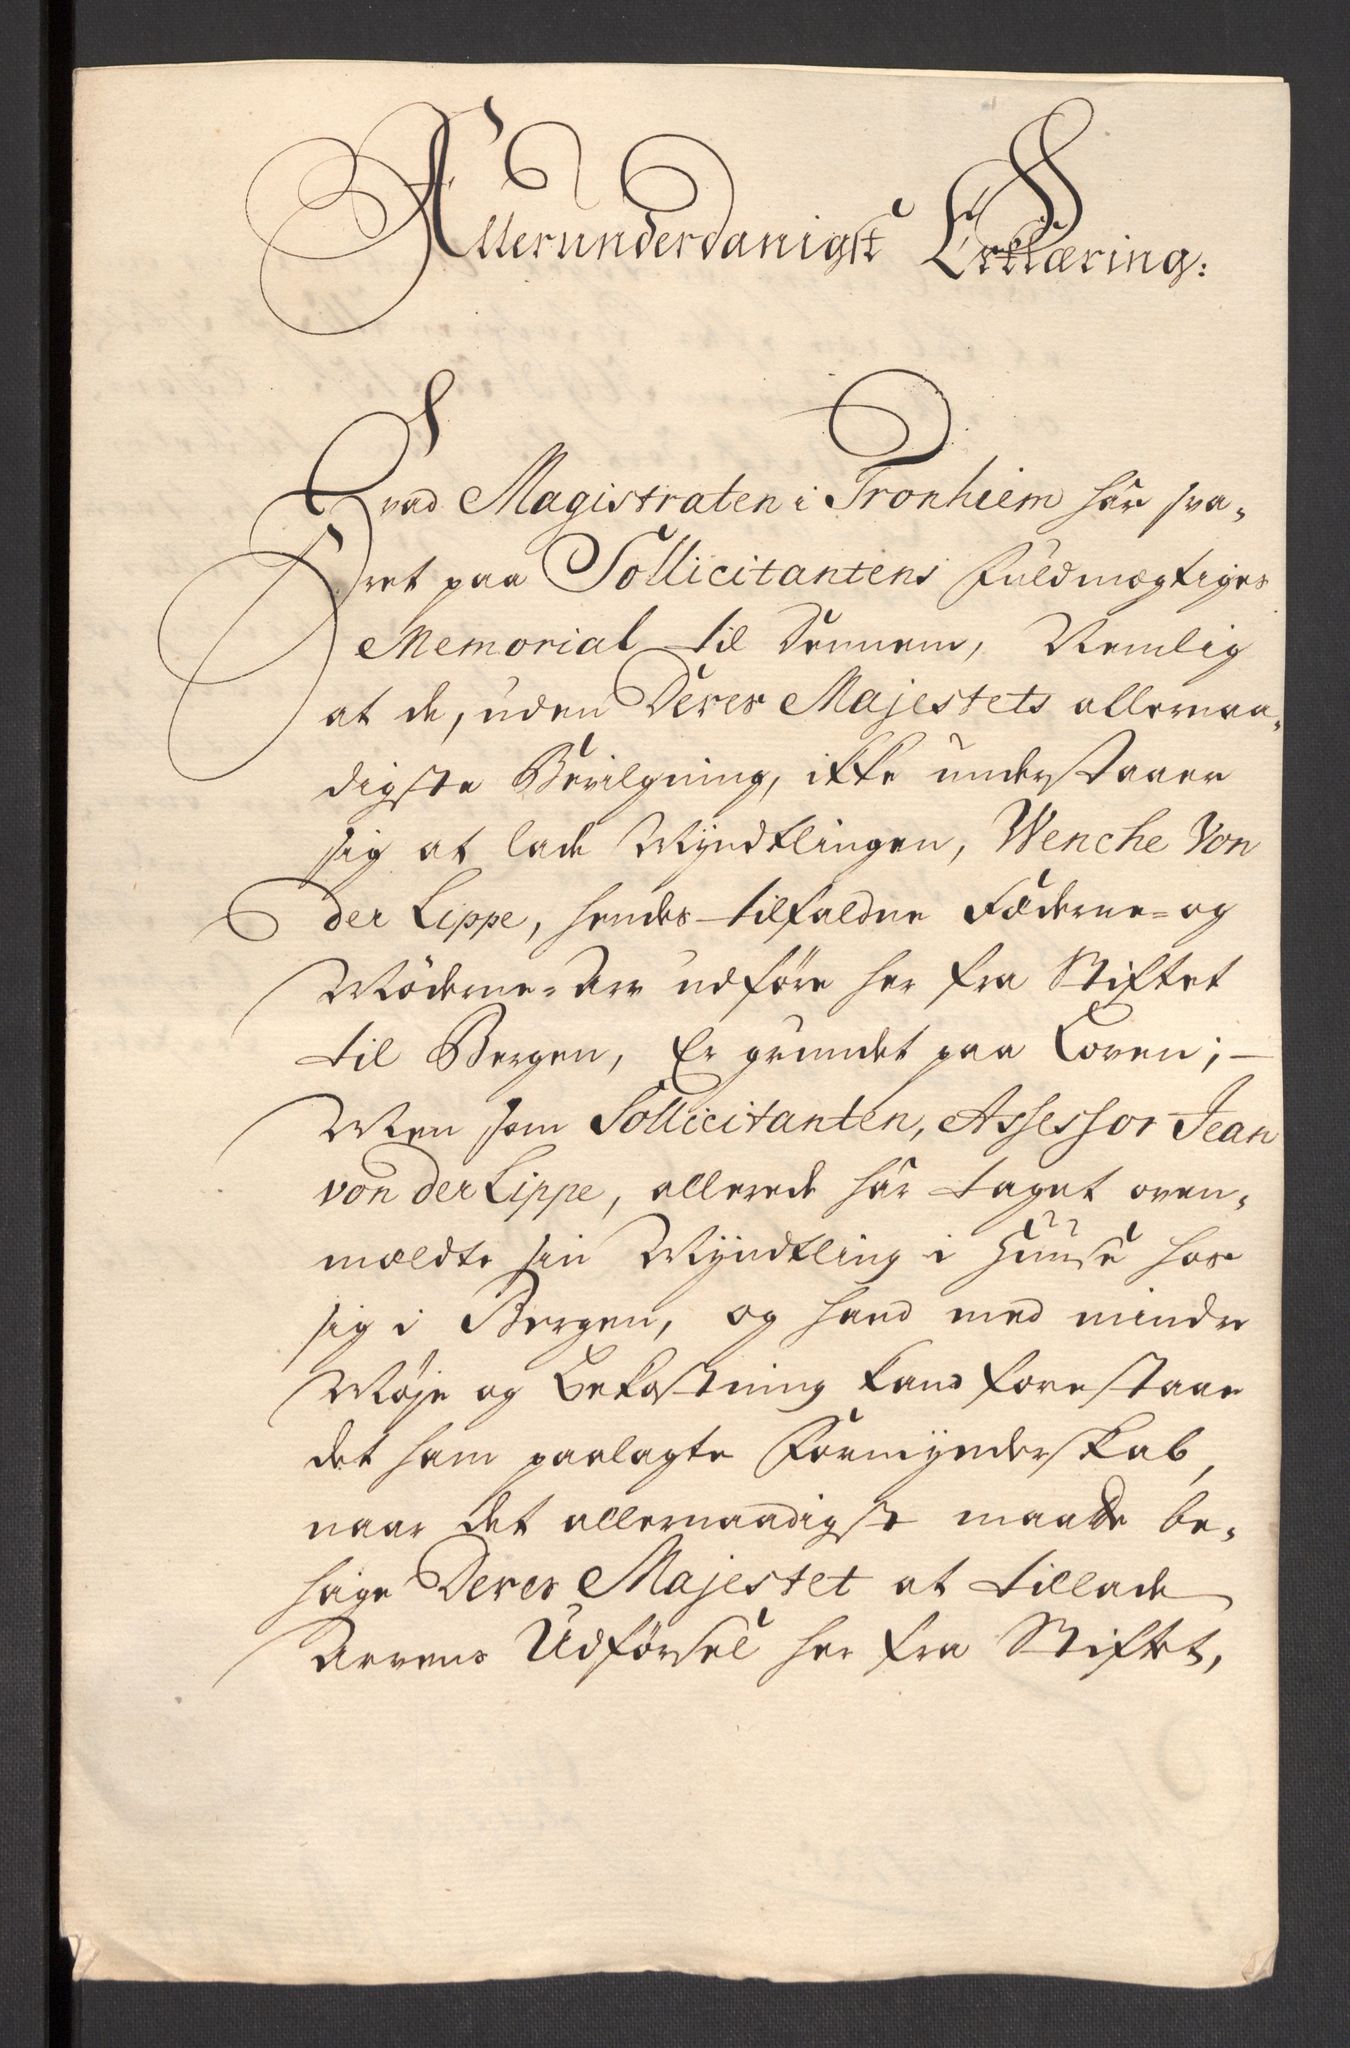 Allerunderdanigst Erklæring:
Hvad Magistraten i Tronhiem har sva-
ret paa Sollicitantens Fuldmægtiges
Memorial til dennem, Nemlig
at de, uden Deres Majestets allernaa-
digste Bevilgning, ikke understaaer
sig at lade Myndtlingen, Wenche Von
der Lippe, hendes tilfaldne Fæderne- og
Møderne-Arv udføre her fra Stiftet
til Bergen, Er grundet paa Loven; -
Men som Sollicitanten, Assessor Jean
von der Lippe, allerede har taget oven-
mældte sin Myndtling i Huuse hos
sig i Bergen, og hand med mindre
Møje og Bekostning kand forestaae
det ham paalagte Formynderskab,
naar det allernaadigst maatte be-
hage Deres Majestet at tillade
Arvens Udførsel her fra Stiftet,